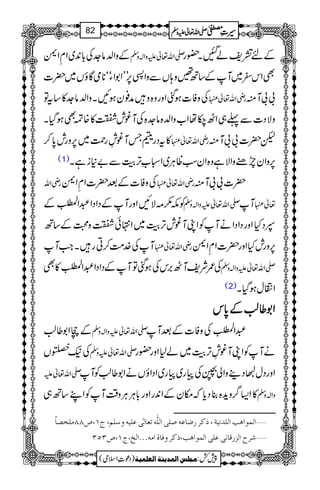 سیرتِ مصطفیٰ صلی اللہ تعالیٰ علیہ وسلم
82
کے لئے تشریف لے گئیں۔ حضور صلی اللہ تعالیٰ علیہ والہ وسلم کے والد ماجد کی باندی ام ایمن
بھی اس سفر میں آپ کے ساتھ تھیں وہاں سے واپسی پر "ابواء" نامی گاؤں میں حضرت
بی بی آمنہ رضی اللہ تعالیٰ عنہا کی وفات ہوگئی اور وہ وہیں مدفون ہوئیں۔ والد ماجد کا سایہ تو
ولادت سے پہلے ہی اٹھ چکا تھا اب والدہ ماجدہ کی آغوش شفقت کا خاتمہ بھی ہوگیا۔
لیکن حضرت بی بی آمنہ رضی اللہ تعالیٰ عنہا کا یہ در یتیم جس آغوش رحمت میں پرورش پا کر
پروان چڑھنے والا ہے وہ ان سب ظاہری اسباب تربیت سے بے نیاز ہے۔ (1)
حضرت بی بی آمنہ رضی اللہ تعالیٰ عنہا کی وفات کے بعد حضرت ام ایمن رضی اللہ
تعالیٰ عنہا آپ صلی اللہ تعالیٰ علیہ والہ وسلم کو مکہ مکرمہ لائیں اور آپ کے دادا عبدالمطلب کے
سپرد کیا اور دادا نے آپ کو اپنی آغوش تربیت میں انتہائی شفقت و محبت کے ساتھ
پرورش کیا اور حضرت ام ایمن رضی اللہ تعالیٰ عنہا آپ کی خدمت کرتی رہیں۔ جب آپ
صلی اللہ تعالیٰ علیہ والہ وسلم کی عمر شریف آٹھ برس کی ہوگئی تو آپ کے دادا عبدالمطلب کا بھی
انتقال ہوگیا۔ (2)
ابوطالب کے پاس
عبدالمطلب کی وفات کے بعد آپ صلی اللہ تعالیٰ علیہ والہ وسلم کے چچا ابوطالب
نے آپ کو اپنی آغوش تربیت میں لے لیا اور حضور صلی اللہ تعالیٰ علیہ والہ وسلم کی نیک خصلتوں
اور دل لبھا دینے والی بچپن کی پیاری پیاری اداؤں نے ابوطالب کو آپ صلی اللہ تعالیٰ علیہ
والہ وسلم کا ایسا گرویدہ بنا دیا کہ مکان کے اندر اور باہر ہر وقت آپ کو اپنے ساتھ ہی
المواهب اللدنية ، ذكر رضاعه صلى الله تعالى عليه وسلم، ج ١، ص ٨٨ ملخصاً
شرح الزرقانى على المواهب، ذكر وفاة امه...الخ، ج ١، ص ٣٥٣
پیش کش: مجلس المدينة العلمية (دعوتِ اسلامی)